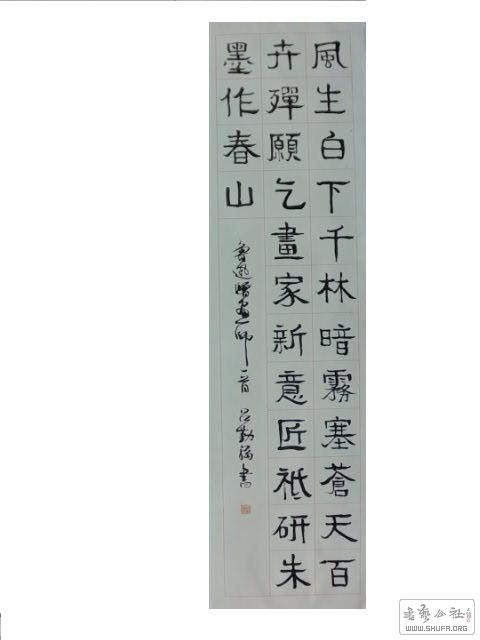 風生白下千林暗霧塞蒼天百
卉殫願乞畫家新意匠祗研朱
墨作春山
魯迅贈畫師一首 書
書藝公社
WWW.SHUFA.ORG